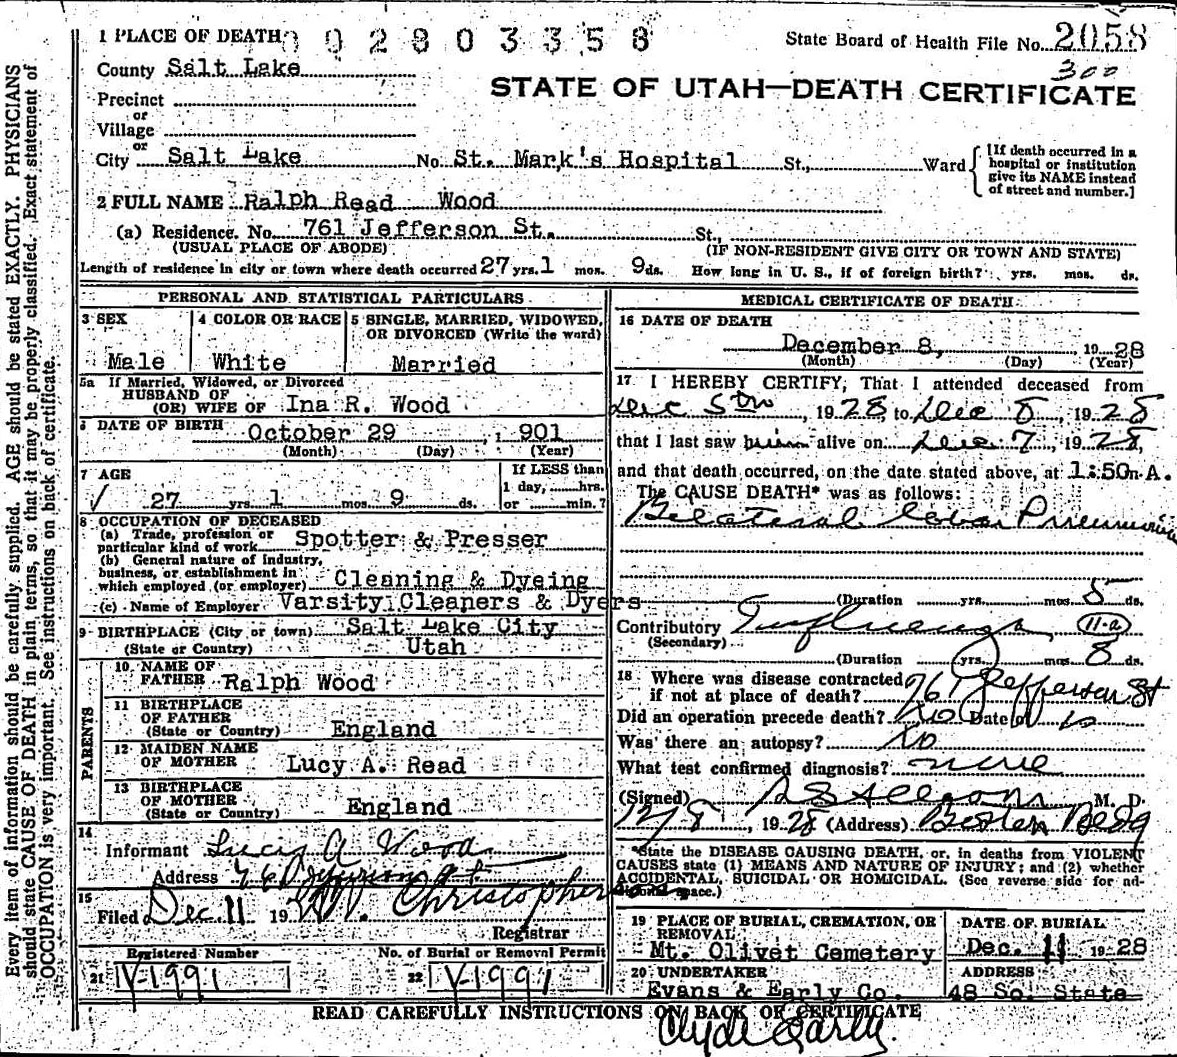 Every item of information should be carefully supplied. AGE should be stated EXACTLY. PHYSICIANS
should state CAUSE OF DEATH in plain terms, so that it may be properly classified. Exact statement of
OCCUPATION is very important. See instructions on back of certificate.
1 PLACE OF DEATH 002803358
State Board of Health File No. 2058
300
County Salt Lake
STATE OF UTAH—DEATH CERTIFICATE
Precinct
or
Village
or
City Salt Lake No. St. Mark's Hospital St., Ward
[If death occurred in a
hospital or institution
give its NAME instead
of street and number.]
2 FULL NAME Ralph Read Wood
(a) Residence. No. 761 Jefferson St. St.,
(USUAL PLACE OF ABODE) (IF NON-RESIDENT GIVE CITY OR TOWN AND STATE)
Length of residence in city or town where death occurred 27 yrs. 1 mos. 9 ds. How long in U. S., if of foreign birth? yrs. mos. ds.
PERSONAL AND STATISTICAL PARTICULARS
3 SEX 4 COLOR OR RACE 5 SINGLE, MARRIED, WIDOWED,
OR DIVORCED (Write the word)
Male White Married
5a If Married, Widowed, or Divorced
HUSBAND OF
(OR) WIFE OF Ina R. Wood
DATE OF BIRTH October 29 , 1901
(Month) (Day) (Year)
7 AGE If LESS than
1 day, hrs.
27 yrs. 1 mos. 9 ds. or min.?
8 OCCUPATION OF DECEASED
(a) Trade, profession or
particular kind of work Spotter & Presser
(b) General nature of industry,
business, or establishment in
which employed (or employer) Cleaning & Dyeing
(c) Name of Employer Varsity Cleaners & Dyers
9 BIRTHPLACE (City or town) Salt Lake City
(State or Country) Utah
PARENTS
10 NAME OF
FATHER Ralph Wood
11 BIRTHPLACE
OF FATHER
(State or Country) England
12 MAIDEN NAME
OF MOTHER Lucy A. Read
13 BIRTHPLACE
OF MOTHER
(State or Country) England
14
Informant Lucy A Wood
Address 761 Jefferson St
15
Filed Dec. 11 19 Christopher
Registrar
Registered Number No. of Burial or Removal Permit
21 Y-1991 22 Y-1991
MEDICAL CERTIFICATE OF DEATH
16 DATE OF DEATH
December 8, 1928
(Month) (Day) (Year)
17 I HEREBY CERTIFY, That I attended deceased from
Dec 5th, 1928 to Dec 8, 1928
that I last saw him alive on Dec 7, 1928,
and that death occurred, on the date stated above, at 1:50 A.
The CAUSE DEATH* was as follows:
Bilateral lobar Pneumonia
(Duration yrs. mos 5 ds.
Contributory Influenza 11-a
(Secondary)
(Duration yrs. mos 8 ds.
18 Where was disease contracted
if not at place of death? 761 Jefferson St
Did an operation precede death? No Date of no
Was there an autopsy? No
What test confirmed diagnosis? none
(Signed) M. D.
12/8, 1928 (Address) Boston Bldg
*State the DISEASE CAUSING DEATH, or, in deaths from VIOLENT
CAUSES state (1) MEANS AND NATURE OF INJURY; and (2) whether
ACCIDENTAL, SUICIDAL OR HOMICIDAL. (See reverse side for ad-
ditional space.)
19 PLACE OF BURIAL, CREMATION, OR
REMOVAL
Mt. Olivet Cemetery
DATE OF BURIAL
Dec. 11 1928
20 UNDERTAKER ADDRESS
Evans & Early Co. 48 So. State
READ CAREFULLY INSTRUCTIONS ON BACK OF CERTIFICATE
Clyde Early.